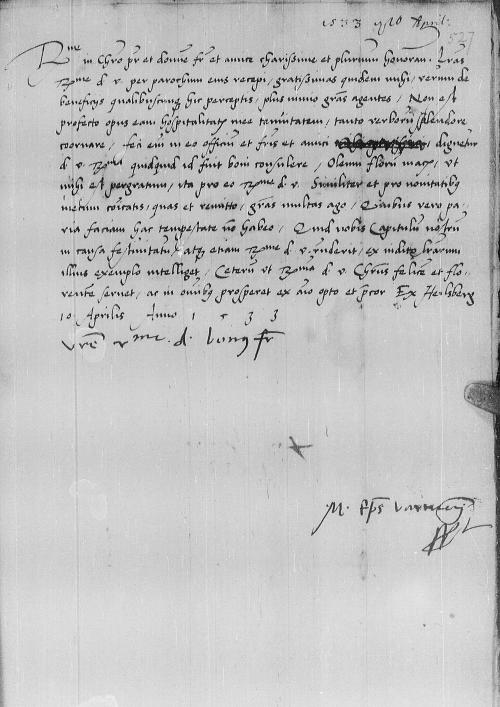 1533 10 April.
527
Rme in Chro pr et domine fr et amice charissime et plurimum honoran. Lras
Rme d v. per parochum eius recepi, gratissimas quidem mihi, verum de
beneficijs qualibuscunq hic perceptis, plus nimio gras agentes, Non est
profecto opus eam hospitalitatis mee tenuitatem, tanto verborum splendore
coornare, feci eni in eo officium et fris et amici dignetur
d v Rma quidquid id fuit boni consulere, Oleum florum may, ut
mihi est pergratum, ita pro eo Rme d v. Similiter et pro novitatibq
mecum coicatis, quas et remitto, gras multas ago, Quibus vero pa-
ria faciam hac tempestate no habeo, Quid nobis Capitulum nostrum
in causa festivitatum, atq etiam Rme d v. rnderit, ex indito lrarum
illius exemplo intelliget, Ceterum ut Rma d v Chrus felice et flo-
rente servet, ac in omnibq prosperet ex aio opto et pcor Ex Heilsberg
10 Aprilis Anno 1533
Vre rme. d. bonq fr
M. Eps Varmien